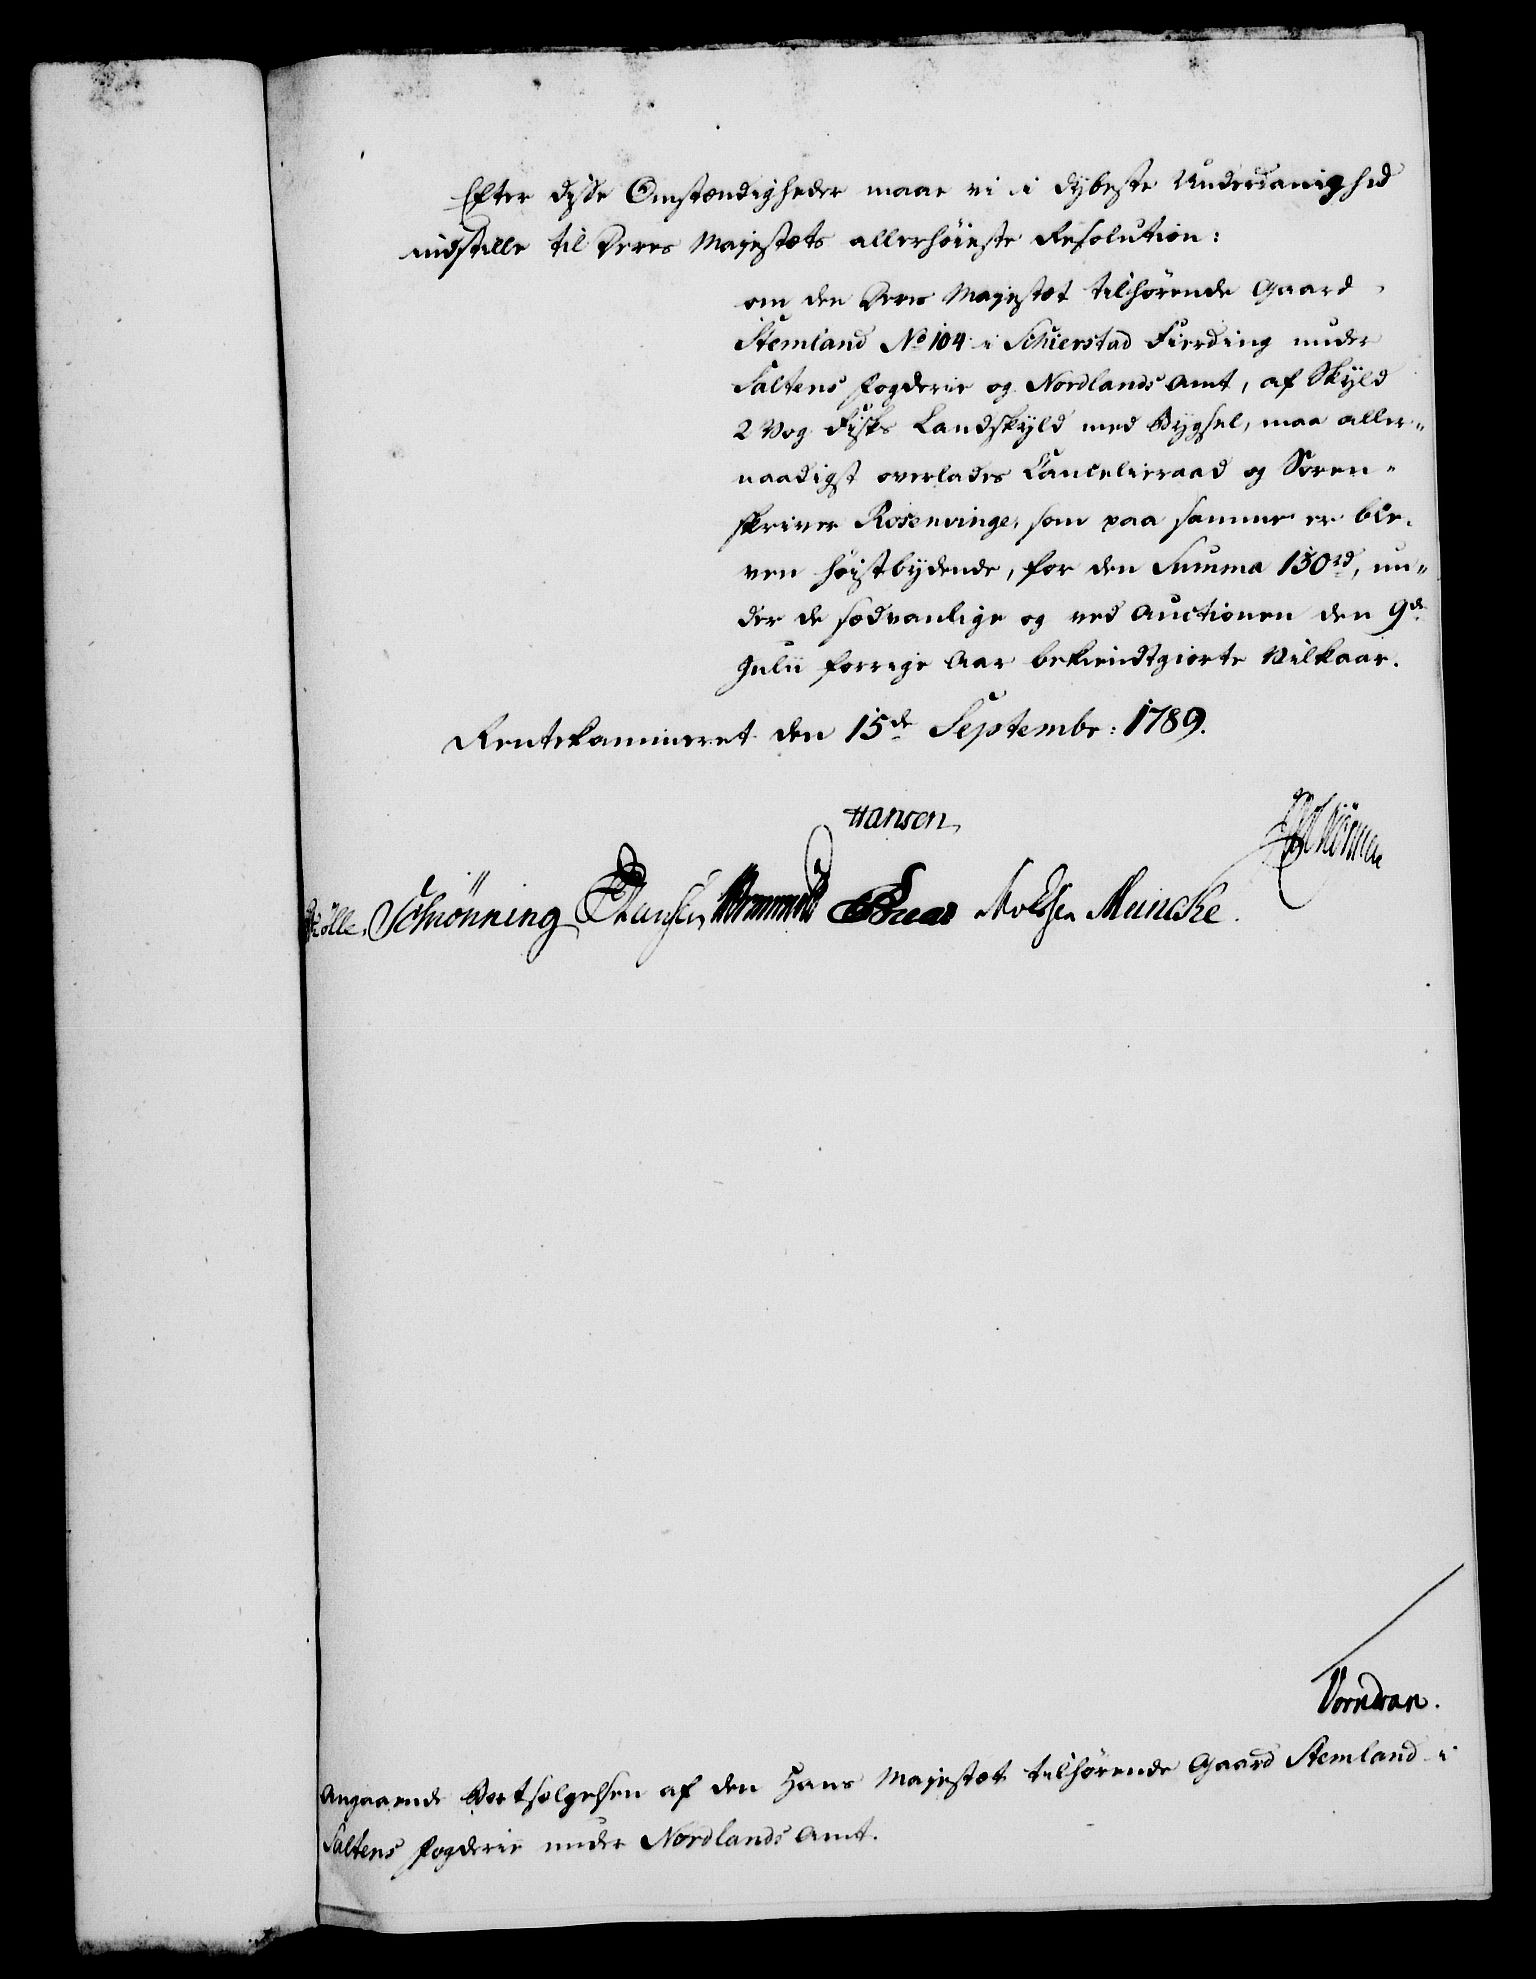 Efter disse Omstændigheder maae vi i dybeste Underdanighed
indstille til Deres Majestæts allerhøieste Resolution:
om den Deres Majestæt tilhørende Gaard
Stemland No 104 i Schierstad Fierding under
Saltens Fogderie og Nordlands Amt, af Skyld
2 Vog Fisks Landskyld med Bygsel, maa aller„
naadigst overlades Cancelieraad og Soren„
skriver Rosenvinge, som paa samme er ble„
ven høistbydende, for den Summa 150 rd, un„
der de sædvanlige og ved Auctionen den 9de
Julii forrige Aar bekiendtgiorte Vilkaar.
Rentekammeret den 15de Septembr: 1789.
Hansen
Schiønning Hansen Molssen Meincke.
Vorndran.
Angaaende Bortsælgelsen af den Hans Majestæt tilhørende Gaard Stemland i
Saltens Fogderie under Nordlands Amt.